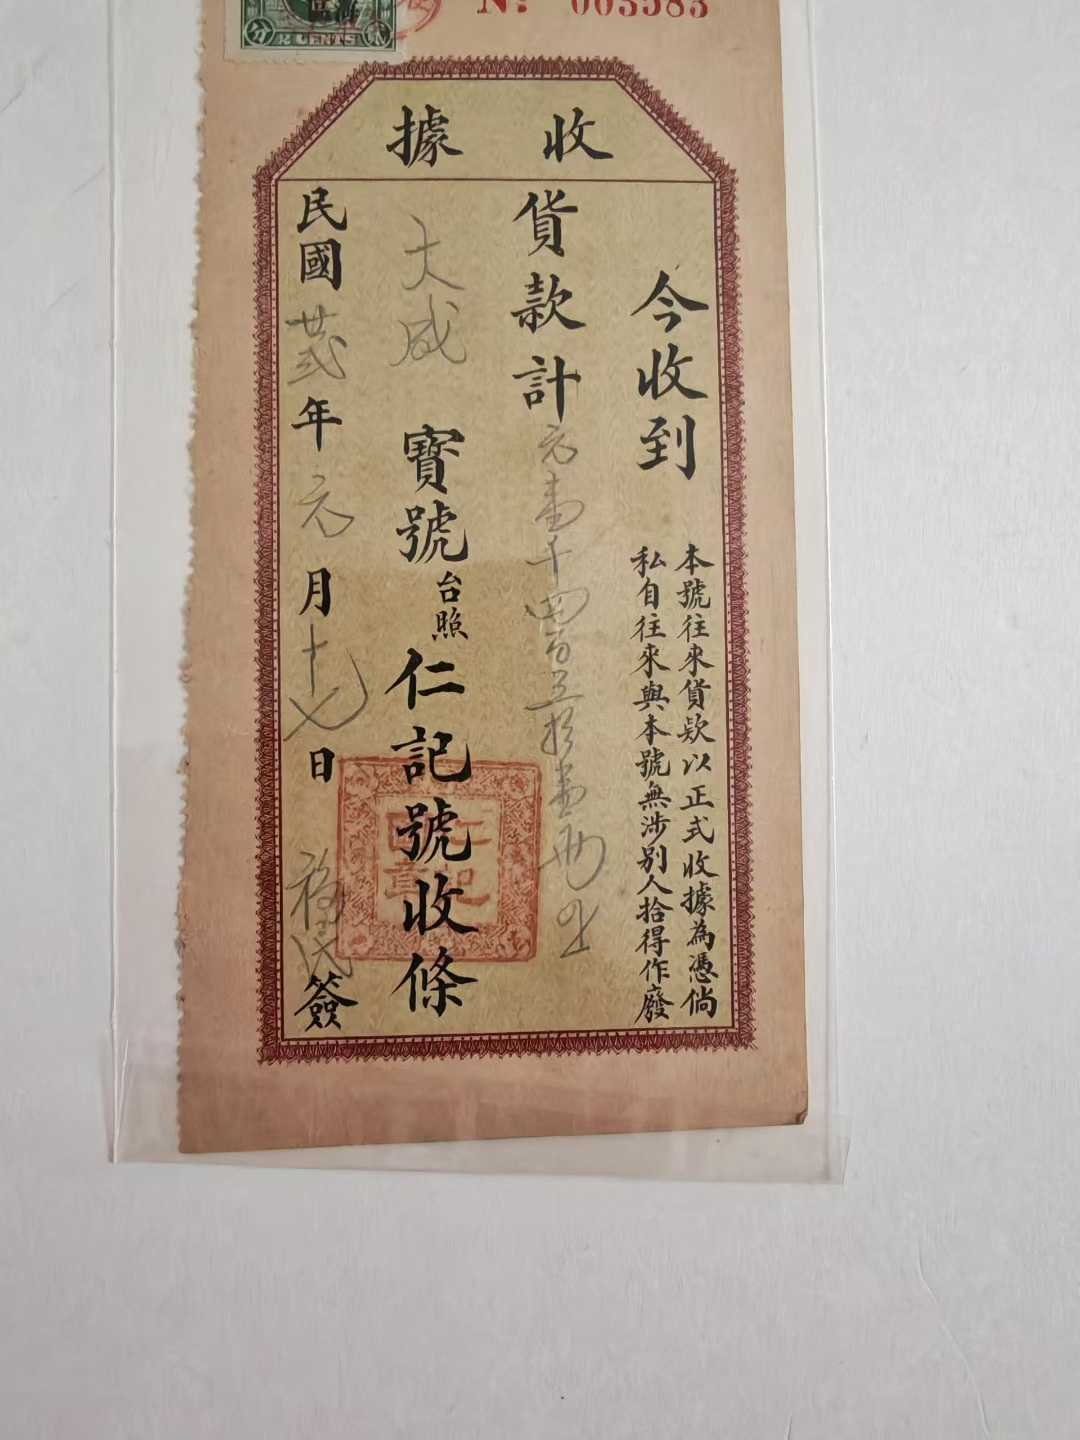 № 003583
2 CENTS
收據
今收到
本號往來貨款以正式收據為憑倘
私自往來與本號無涉別人拾得作廢
貨款計元壹千四百五拾壹兩正
大成寶號台照仁記號收條
民國廿弍年元月十七日
簽